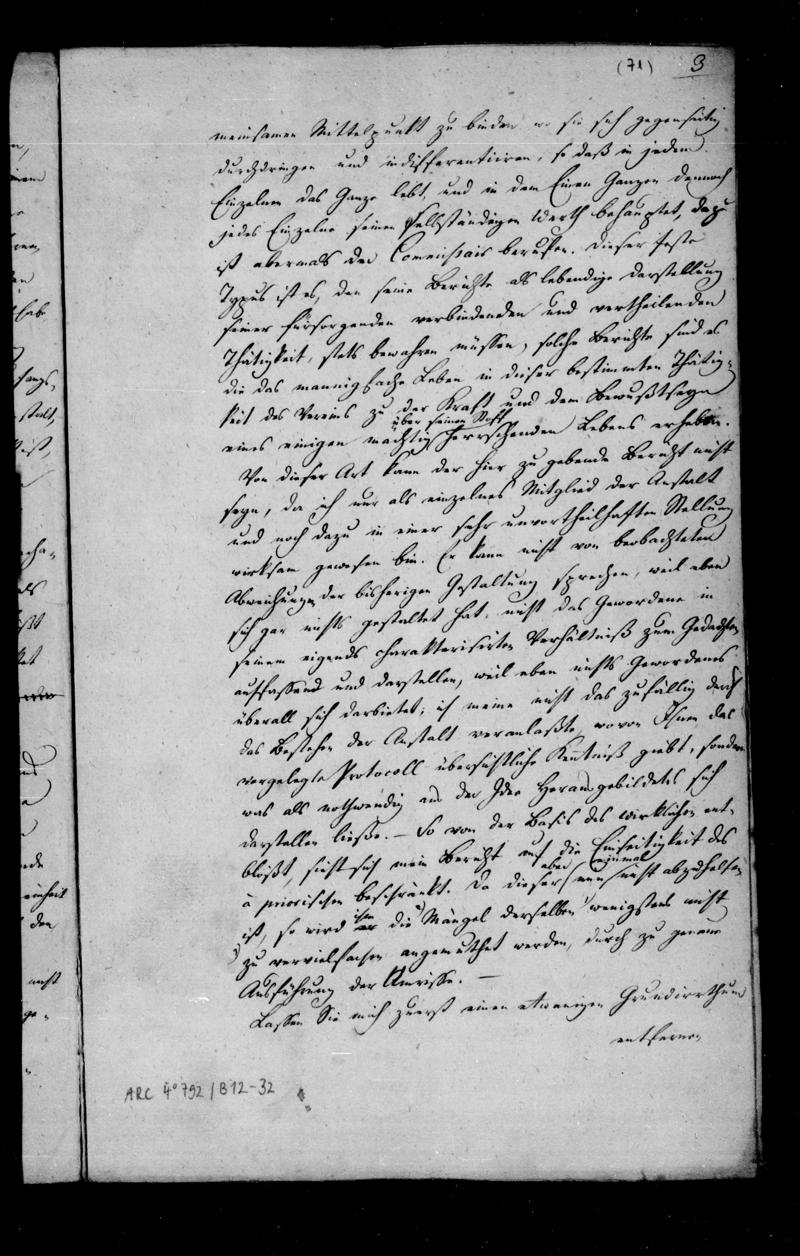 (71) 3
meinsamen Mittelpunkt zu binden wo sie sich gegenseitig
durchdringen und indifferentiiren, so daß in jedem
Einzelnen das Ganze lebt, und in dem Einen Ganzen dennoch
jedes Einzelne seinen selbständigen Werth behauptet, dazu
ist abermals der Commissair berufen. Dieser feste
Typus ist es, den seine Berichte als lebendige Darstellung
seiner fürsorgenden verbindenden und vertheilenden
Thätigkeit, stets bewahren müssen; solche Berichte sind es
die das mannigfache Leben in dieser bestimmten Thätig-
keit des Vereins zu der Kraft und dem Bewußtseyn
über seinen Stoff
eines einigen mächtig herrschenden Lebens erheben.
Von dieser Art kann der hier zu gebende Bericht nicht
seyn, da ich nur als einzelnes Mitglied der Anstalt
und noch dazu in einer sehr unvortheilhaften Stellung
wirksam gewesen bin. Er kann nicht von beobachteten
Abweichungen der bisherigen Gestaltung sprechen, weil eben
sich gar nichts gestaltet hat, nicht das Gewordene in
seinem eigends charakterisirten Verhältniß zum Gedachten
auffassend und darstellen, weil eben nichts Gewordenes
überall sich darbietet; ich meine nicht das zufällig durch
das Bestehen der Anstalt veranlaßte, wovon Ihnen das
vorgelegte Protocoll übersichtliche Kentniß giebt, sondern
was als nothwendig aus der Idee Herausgebildetes sich
darstellen ließe. – So von der Basis des Wirklichen ent-
blößt, sieht sich mein Bericht auf die Einseitigkeit des
aber einmal
à priorischen beschränkt. Da dieser nun nicht abzuhelfen
ihm
ist, so wird er die Mängel derselben wenigstens nicht
zu vervielfachen angemuthet werden, durch zu genaue
Ausführung der Umrisse. –
Lassen Sie mich zuerst einen etwanigen Grundirrthum
entfernen
ARC 4° 792 / B12-32